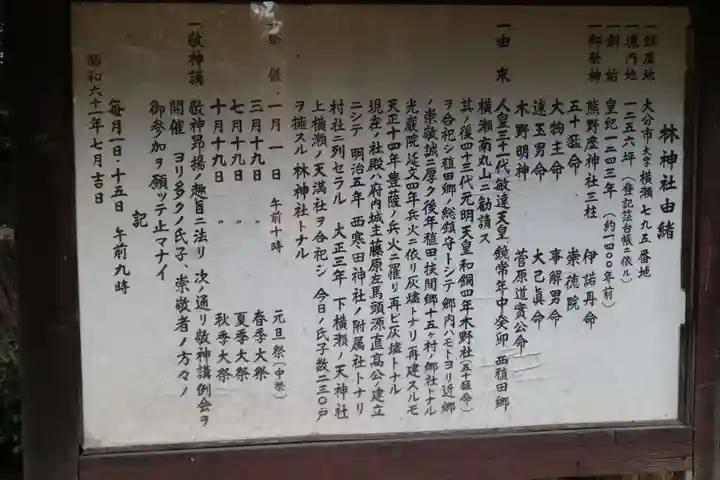 林神社由緒
一鎮座地 大分市大字横瀬七九五番地
一境内地 一二五六坪(登記法台帳ニ依ル)
一創始 皇紀一二四三年(約一四〇〇年前)
一御祭神 熊野座神社三柱 伊諾丹命
五十猛命 崇徳院
大物主命 事解男命
速玉男命 大己眞命
木野明神 菅原道實公命
一由来 人皇三十一代敏達天皇、鏡常年中癸卯、西植田郷
横瀬南丸山ニ勧請ス
其ノ後四十三代元明天皇和銅四年木野社(五十猛命)
ヲ合祀シ植田郷ノ総鎮守トシテ郷内ハモトヨリ近郷
ノ崇敬誠ニ厚ク後年植田挾間郷十五ヶ村ノ郷社トナル
光嚴院延文四年兵火ニ依リ灰燼トナリ再建スルモ
天正十四年豊薩ノ兵火ニ罹リ再ビ灰燼トナル
現在ノ社殿ハ府内城主藤原左馬頭源直高公ノ建立
ニシテ明治五年西寒田神社ノ附属社トナリ
村社ニ列セラル 大正三年下横瀬ノ天神社
上横瀬ノ天満社ヲ合祀シ今日ノ氏子数二三〇戸
ヲ擁スル林神社トナル
一祭催 一月一日 午前十時 元旦祭(中祭)
三月十九日 〃 春季大祭
七月十九日 〃 夏季大祭
十月十九日 〃 秋季大祭
一敬神講 敬神昂揚ノ趣旨ニ法リ次ノ通リ敬神講例会ヲ
開催 ヨリ多クノ氏子、崇敬者ノ方々ノ
御参加ヲ願ッテ止マナイ
記
毎月一日・十五日 午前九時
昭和六十一年七月吉日